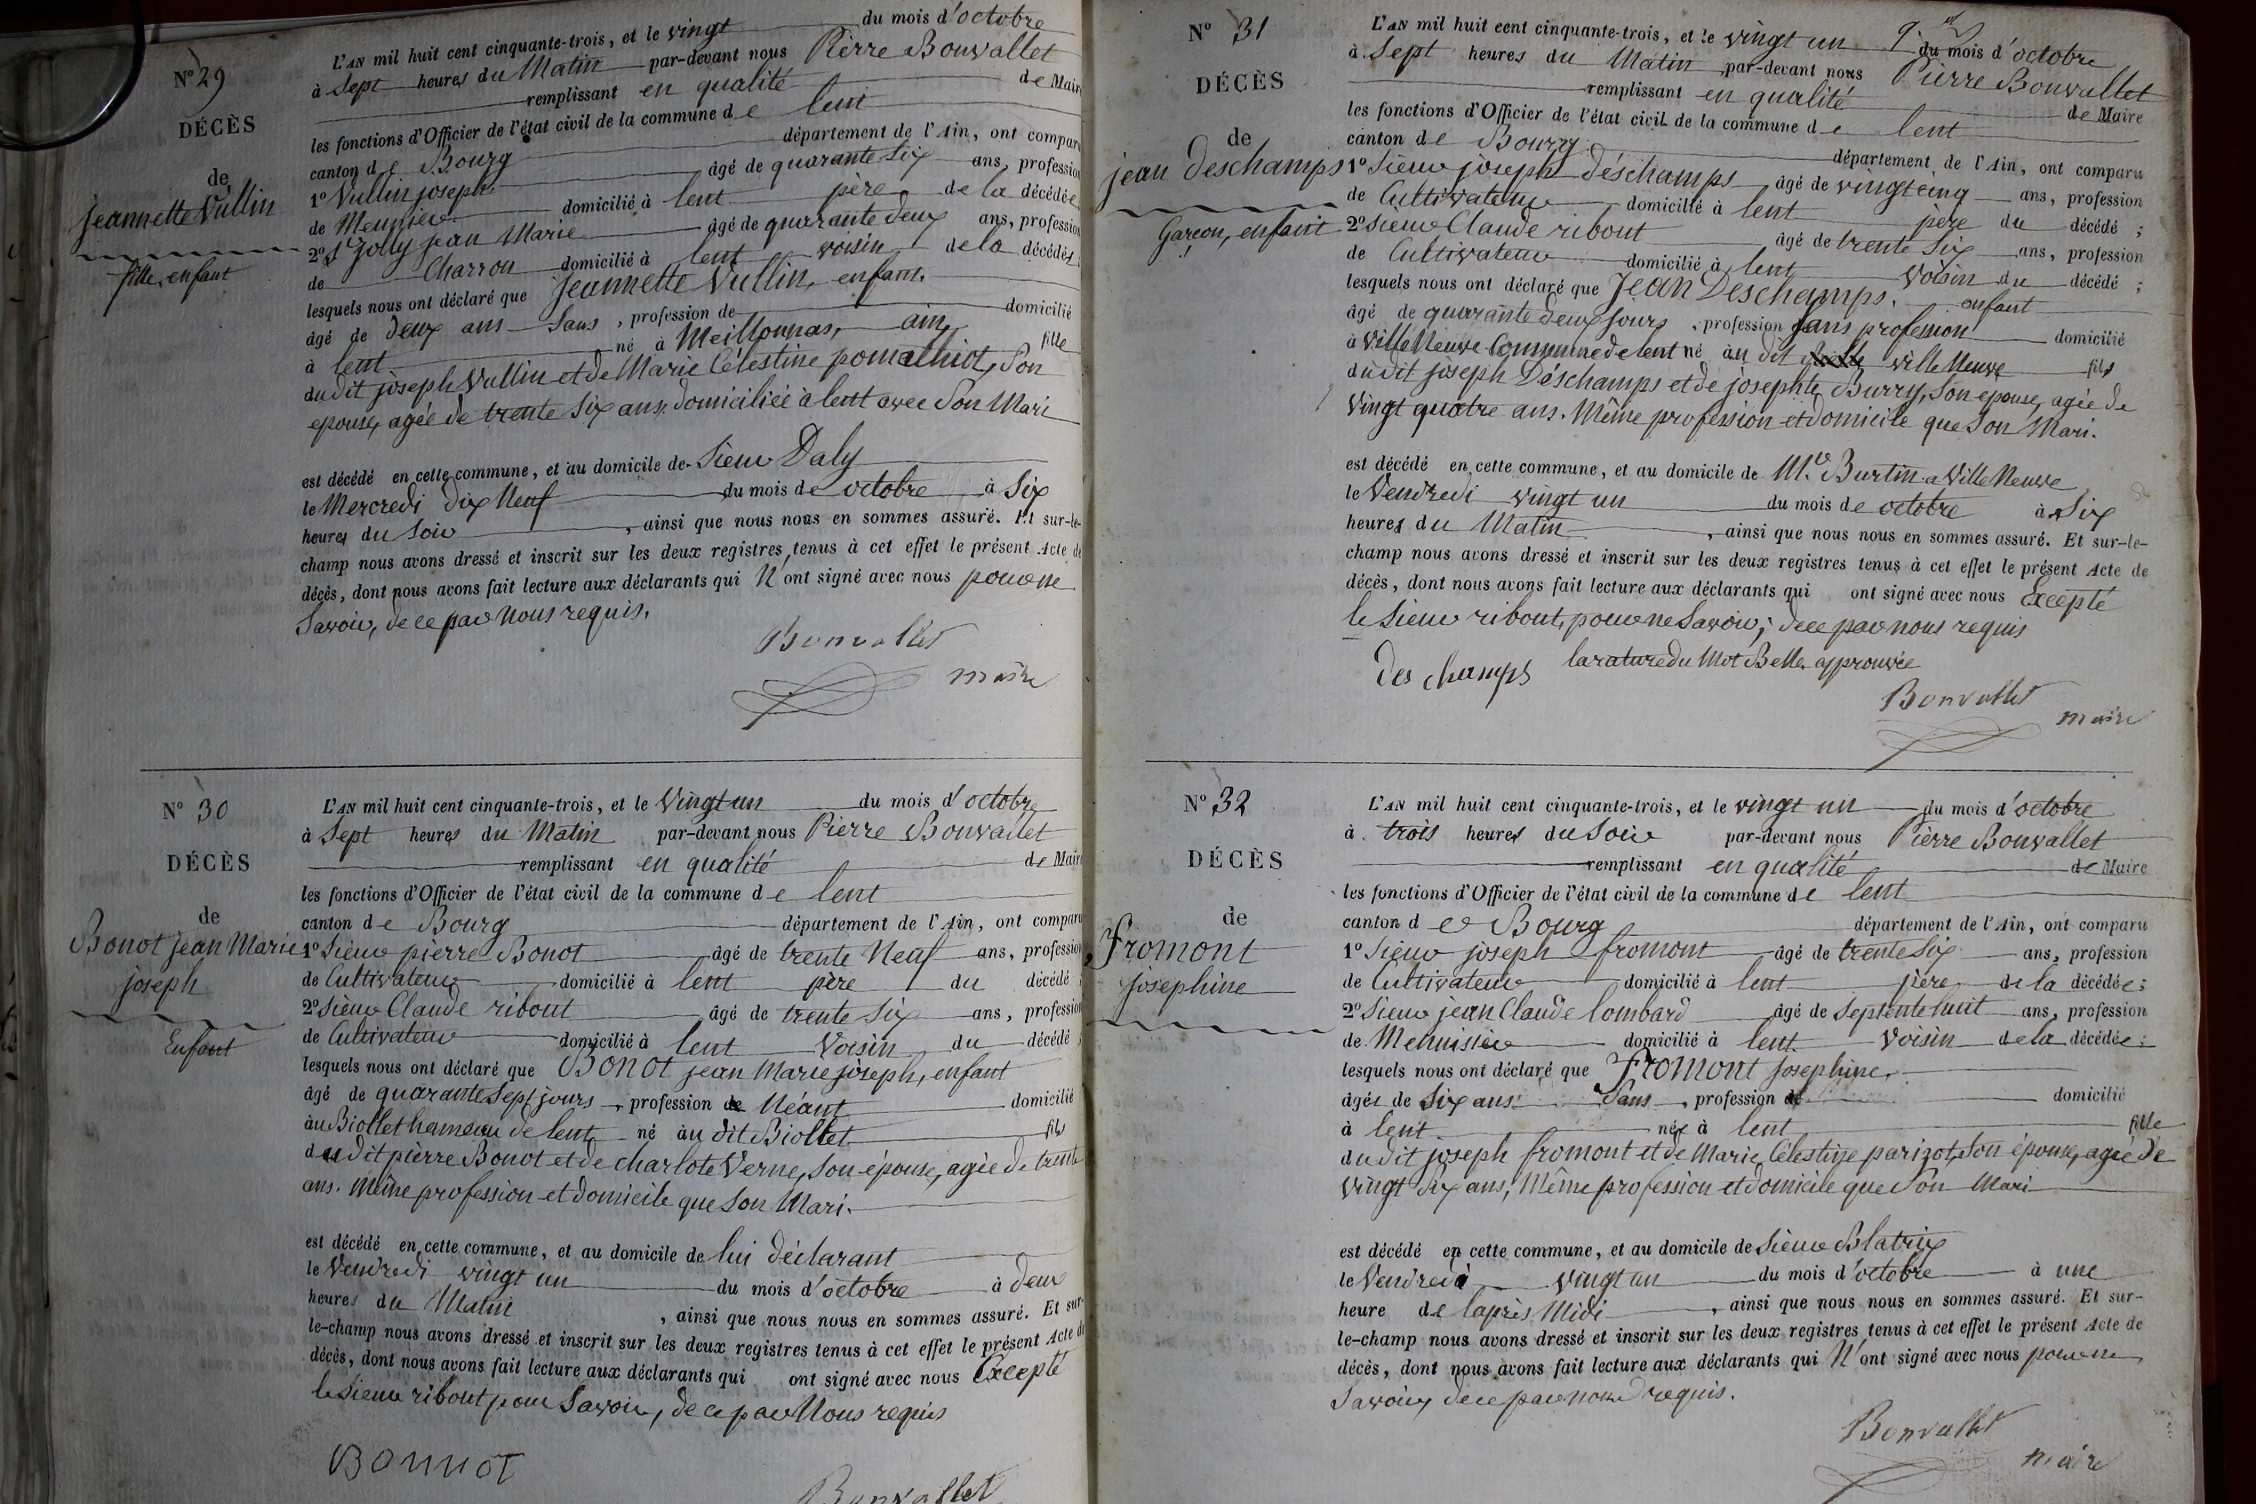 N° 29
DÉCÈS
de
Jeannette Vullin
fille, enfant
L'AN mil huit cent cinquante-trois, et le vingt du mois d'octobre
à Sept heures du Matin par-devant nous Pierre Bonvallet
remplissant en qualité de Maire
les fonctions d'Officier de l'état civil de la commune de lent
canton de Bourg département de l'Ain, ont comparu
1° Vullin joseph âgé de quarante Six ans, profession
de Meunier domicilié à lent père de la décédée;
2° Sr Jolly jean Marie âgé de quarante deux ans, profession
de Charron domicilié à lent voisin de la décédée;
lesquels nous ont déclaré que Jeannette Vullin, enfant.
âgé de deux ans Sans, profession de domicilié
à lent né à Meillonnas, ain, fille
du dit joseph Vullin et de Marie Célestine pomathiot, Son
epouse, agée de trente Six ans, domiciliée à lent avec Son Mari
est décédé en cette commune, et au domicile de Sieur Daly
le Mercredi dix Neuf du mois de octobre à Six
heures du Soir, ainsi que nous nous en sommes assuré. Et sur-le-
champ nous avons dressé et inscrit sur les deux registres tenus à cet effet le présent Acte de
décès, dont nous avons fait lecture aux déclarants qui N'ont signé avec nous pour ne
Savoir, de ce par Nous requis.
Bonvallet
maire
N° 30
DÉCÈS
de
Bonot jean Marie
joseph
Enfant
L'AN mil huit cent cinquante-trois, et le Vingt un du mois d'octobre
à Sept heures du Matin par-devant nous Pierre Bonvallet
remplissant en qualité de Maire
les fonctions d'Officier de l'état civil de la commune de lent
canton de Bourg département de l'Ain, ont comparu
1° Sieur pierre Bonot âgé de trente Neuf ans, profession
de Cultivateur domicilié à lent père du décédé;
2° Sieur Claude ribout âgé de trente Six ans, profession
de Cultivateur domicilié à lent Voisin du décédé;
lesquels nous ont déclaré que Bonot jean Marie joseph, enfant
âgé de quarante Sept jours, profession de Néant domicilié
au Biollet hameau de lent né au dit Biollet fils
du dit pierre Bonot et de charlote Verne, Son épouse, agée de trente
ans. Même profession et domicile que Son Mari.
est décédé en cette commune, et au domicile de lui déclarant
le Vendredi vingt un du mois d'octobre à deux
heures du Matin, ainsi que nous nous en sommes assuré. Et sur-
le-champ nous avons dressé et inscrit sur les deux registres tenus à cet effet le présent Acte de
décès, dont nous avons fait lecture aux déclarants qui ont signé avec nous Excepté
le Sieur ribout pour Savoir, de ce par Nous requis
Bonnot
Bonvallet
N° 31
DÉCÈS
de
jean Deschamps
Garçon, enfant
L'AN mil huit cent cinquante-trois, et le vingt un du mois d'octobre
à Sept heures du Matin par-devant nous Pierre Bonvallet
remplissant en qualité de Maire
les fonctions d'Officier de l'état civil de la commune de lent
canton de Bourg département de l'Ain, ont comparu
1° Sieur joseph Déschamps âgé de vingt cinq ans, profession
de Cultivateur domicilié à lent père du décédé;
2° Sieur Claude ribout âgé de trente Six ans, profession
de Cultivateur domicilié à lent Voisin du décédé;
lesquels nous ont déclaré que Jean Deschamps. enfant
âgé de quarante deux jours, profession Sans profession domicilié
à Ville Neuve Commune de lent né au dit Ville Neuve fils
du dit joseph Déschamps et de josephte Burry, Son epouse, agée de
Vingt quatre ans. Même profession et domicile que Son Mari.
est décédé en cette commune, et au domicile de Mr Burtin a Ville Neuve
le Vendredi vingt un du mois de octobre à Six
heures du Matin, ainsi que nous nous en sommes assuré. Et sur-le-
champ nous avons dressé et inscrit sur les deux registres tenus à cet effet le présent Acte de
décès, dont nous avons fait lecture aux déclarants qui ont signé avec nous Excepté
le Sieur ribout, pour ne Savoir; de ce par nous requis
la rature du Mot Belle approuvée
des champs
Bonvallet
maire
N° 32
DÉCÈS
de
Fromont
josephine
L'AN mil huit cent cinquante-trois, et le vingt un du mois d'octobre
à trois heures du Soir par-devant nous Pierre Bonvallet
remplissant en qualité de Maire
les fonctions d'Officier de l'état civil de la commune de lent
canton de Bourg département de l'Ain, ont comparu
1° Sieur joseph fromont âgé de trente Six ans, profession
de Cultivateur domicilié à lent père de la décédée;
2° Sieur jean Claude lombard âgé de Septente huit ans, profession
de Menuisier domicilié à lent Voisin de la décédée;
lesquels nous ont déclaré que Fromont Josephine,
âgée de Six ans Sans, profession de domicilié
à lent née à lent fille
du dit joseph fromont et de Marie Célestine parizot, Son épouse, agée de
Vingt Six ans, Même profession et domicile que Son Mari
est décédé en cette commune, et au domicile de Sieur Blatrix
le Vendredi vingt un du mois d'octobre à une
heure de l'après Midi, ainsi que nous nous en sommes assuré. Et sur-
le-champ nous avons dressé et inscrit sur les deux registres tenus à cet effet le présent Acte de
décès, dont nous avons fait lecture aux déclarants qui N'ont signé avec nous pour ne
Savoir, de ce par nous requis.
Bonvallet
maire